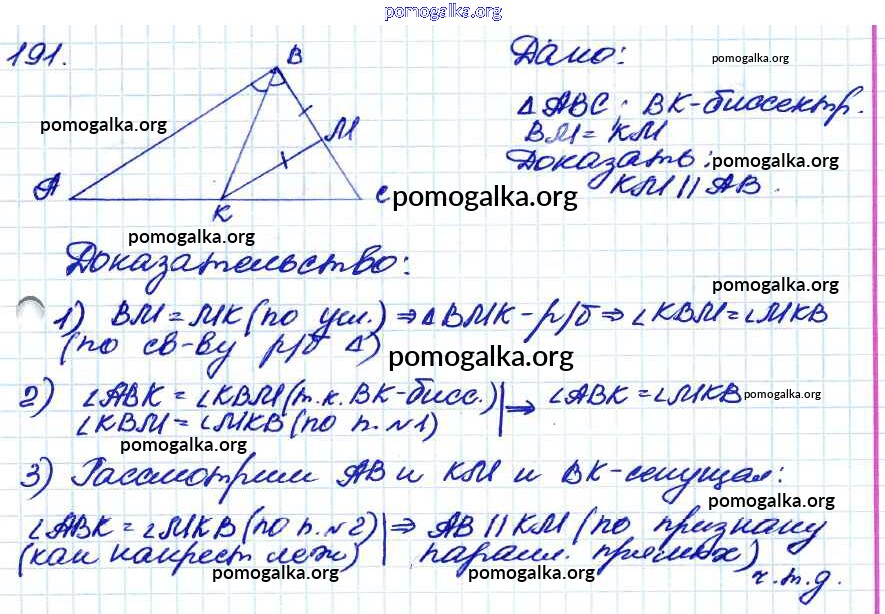 pomogalka.org
191.
B
Дано:
pomogalka.org
△ABC; BK-биссектр.
pomogalka.org
BM = KM
M
Доказать:
pomogalka.org
KM || AB.
A
K
C
pomogalka.org
pomogalka.org
Доказательство:
pomogalka.org
1) BM = MK (по усл.) ⇒ △BMK - р/б ⇒ ∠KBM = ∠MKB
(по св-ву р/б △)
pomogalka.org
2) ∠ABK = ∠KBM (т.к. BK-бисс.) | ⇒ ∠ABK = ∠MKB
pomogalka.org
∠KBM = ∠MKB (по п. №1)
pomogalka.org
3) Рассмотрим AB и KM и BK-секущая:
pomogalka.org
∠ABK = ∠MKB (по п. №2) | ⇒ AB || KM (по признаку
(как накрест леж) | парал. прямых)
pomogalka.org
pomogalka.org
ч.т.д.